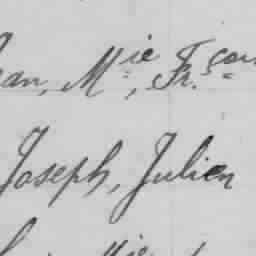 ean, M.ie, Fr.çois
Joseph, Julien